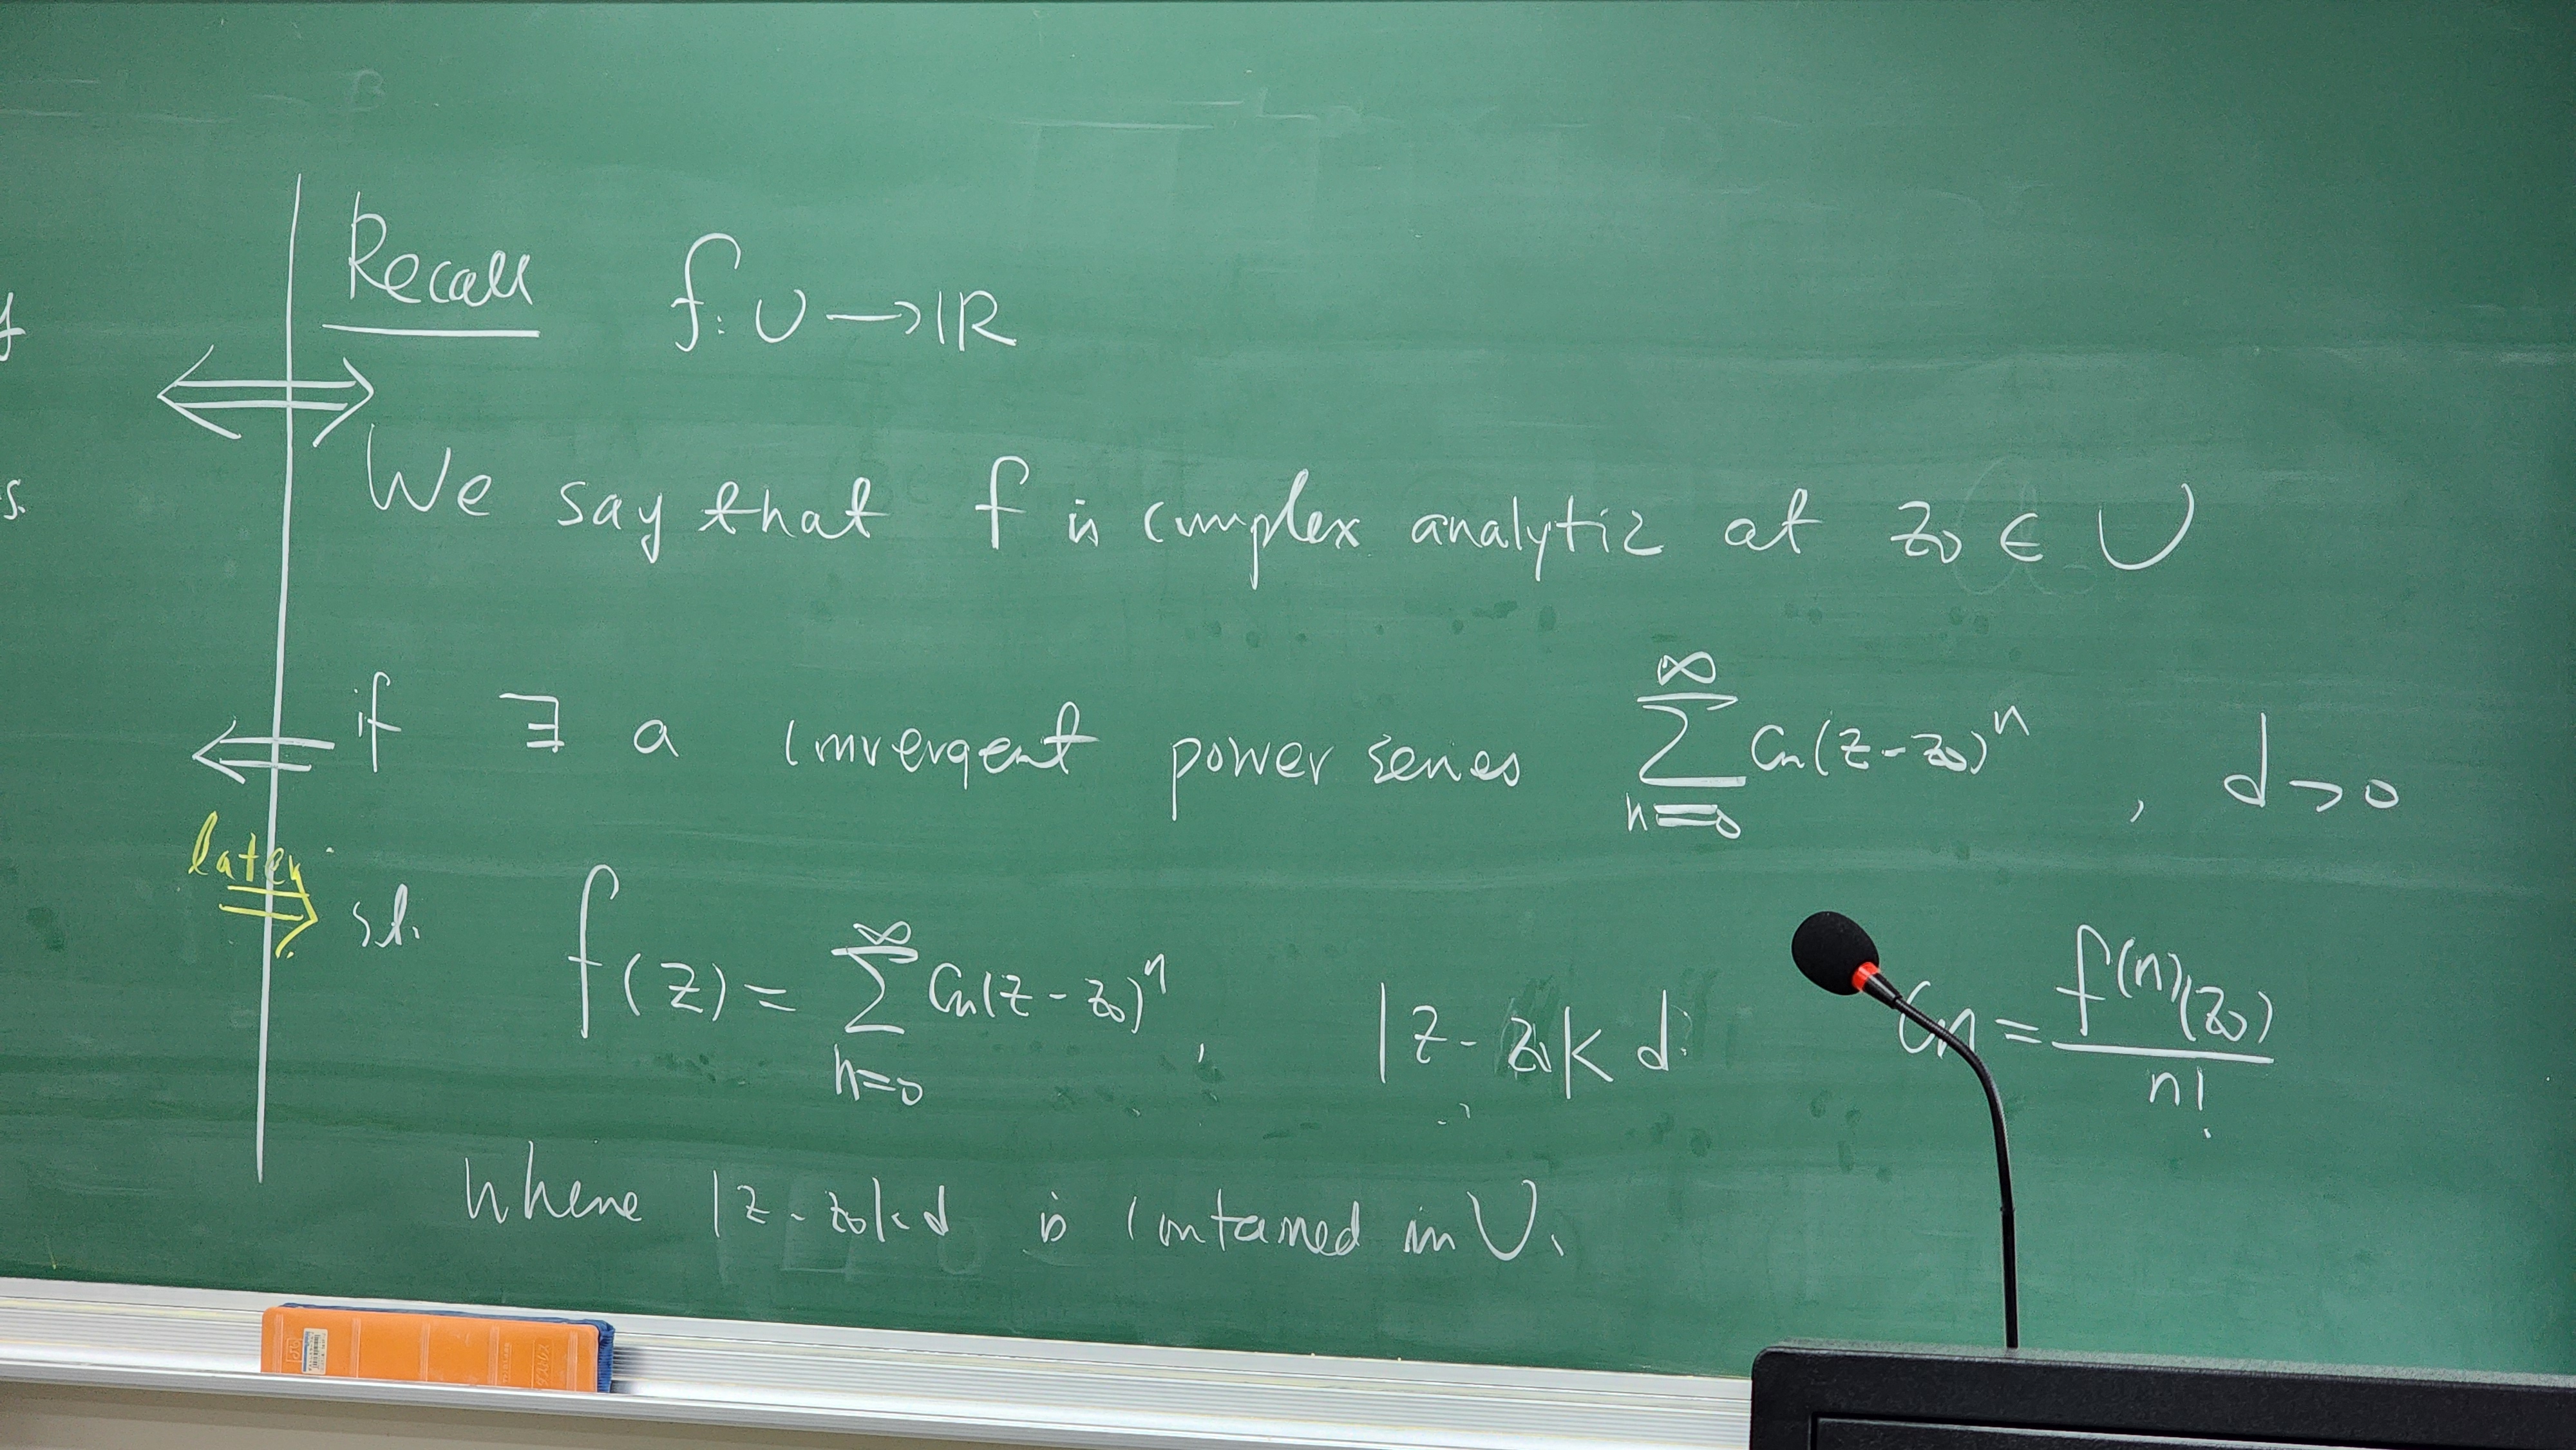 Recall f: U → ℝ
We say that f is complex analytic at z₀ ∈ U
if ∃ a convergent power series ∑_{n=0}^{∞} Cn(z-z₀)ⁿ, d>0
later
s.t. f(z) = ∑_{n=0}^{∞} Cn(z-z₀)ⁿ, |z-z₀|<d. Cn = f⁽ⁿ⁾(z₀)/n!
where |z-z₀|<d is contained in U.